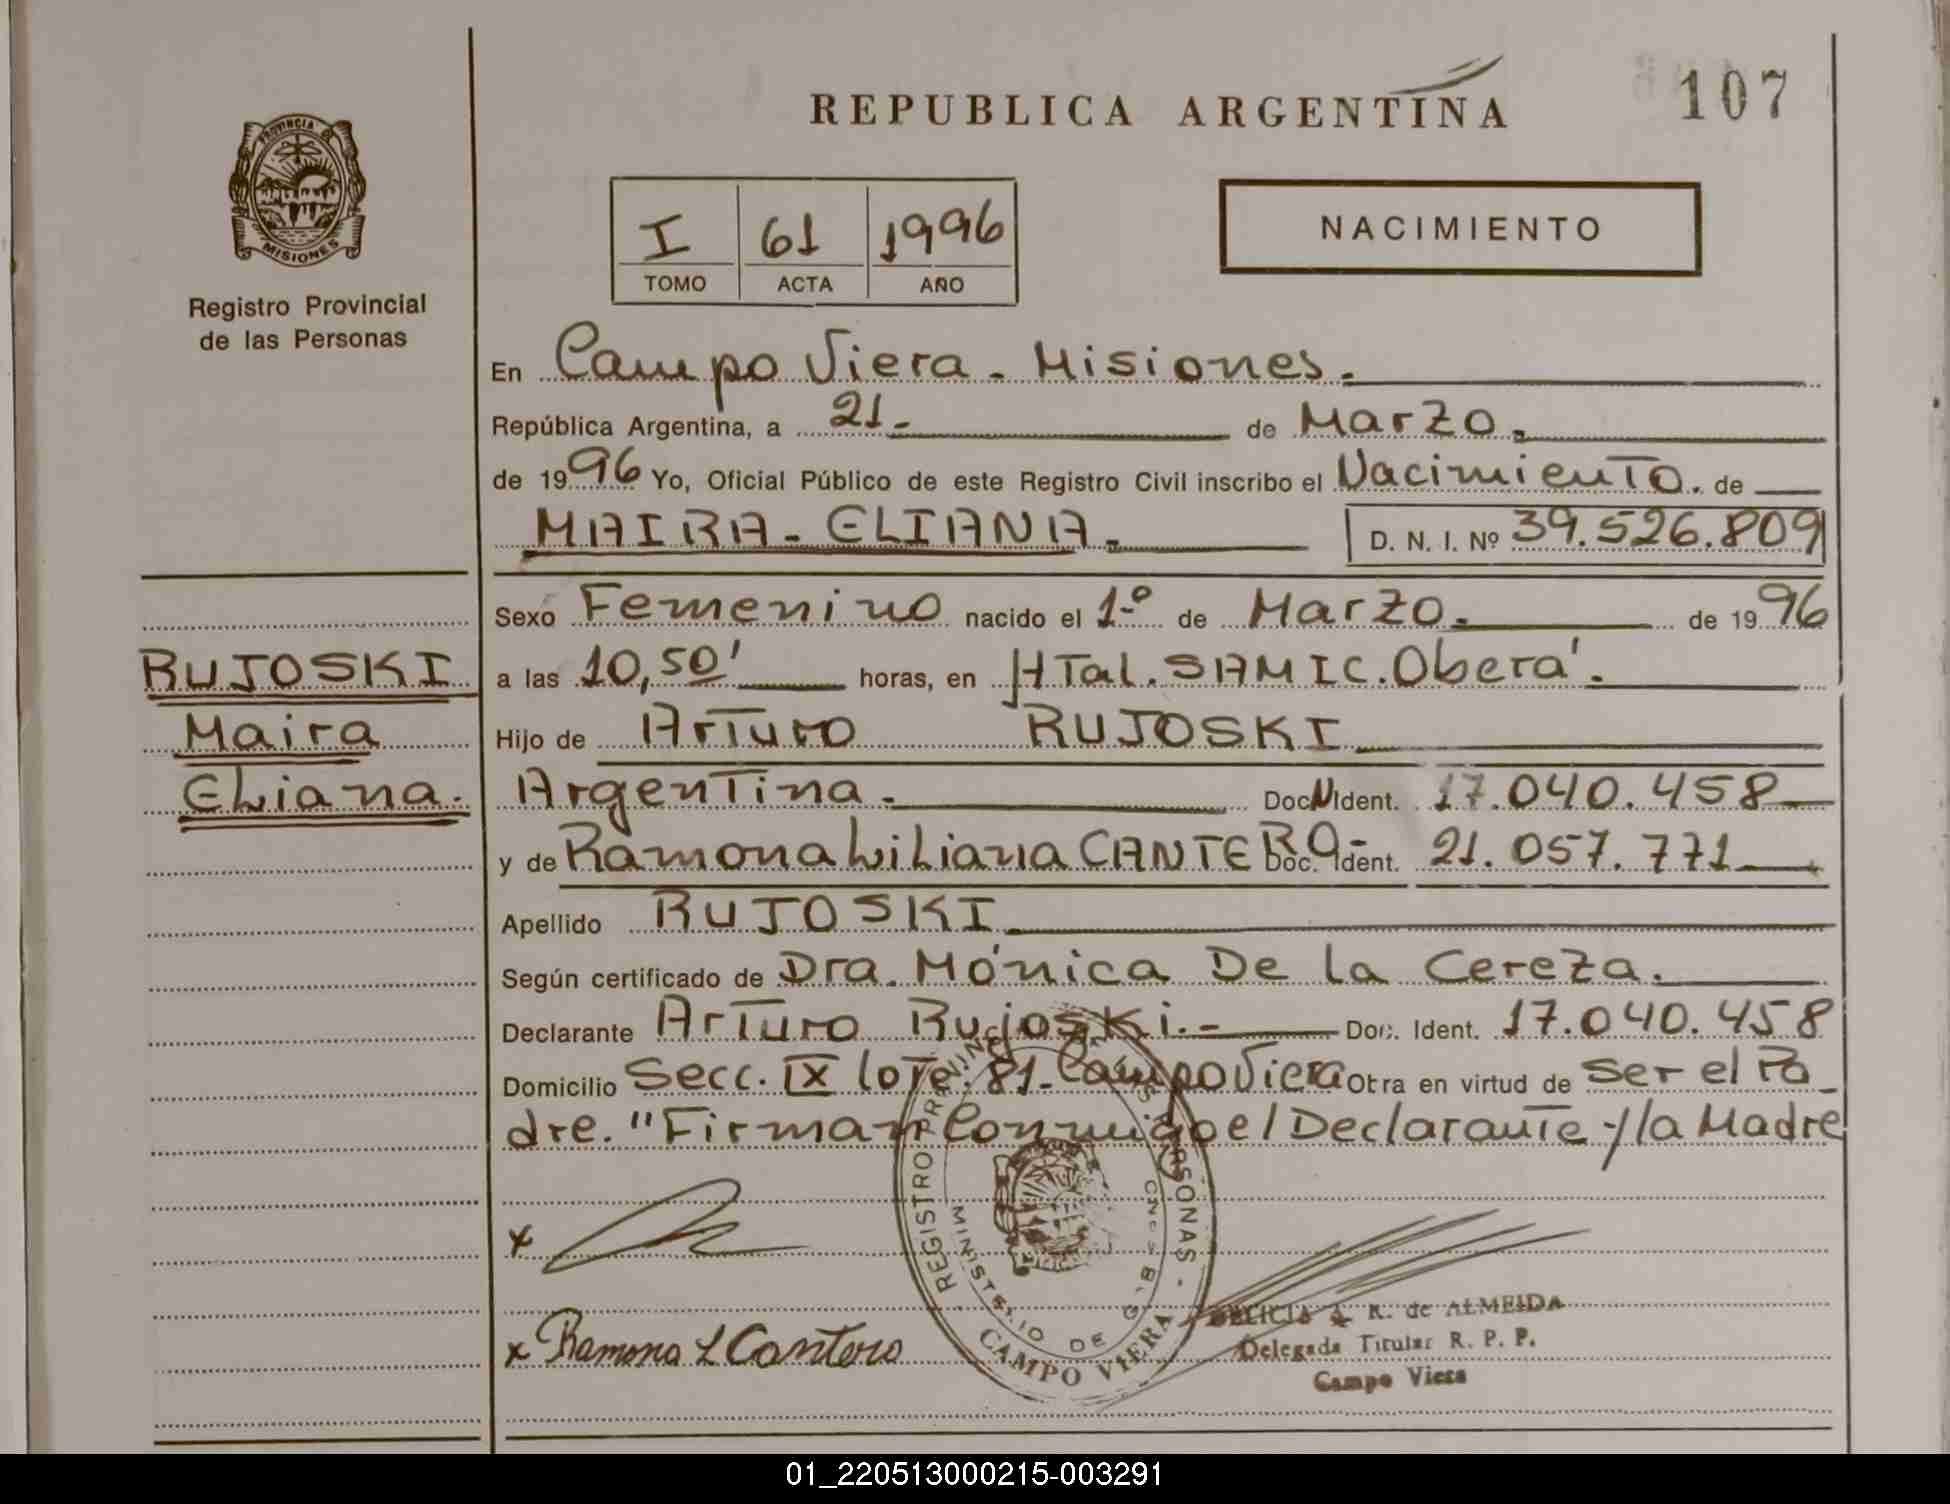 REPUBLICA ARGENTINA
107
PROVINCIA DE
MISIONES
Registro Provincial
de las Personas
I 61 1996
TOMO ACTA AÑO
NACIMIENTO
En Campo Viera - Misiones.
República Argentina, a 21- de Marzo.
de 1996 Yo, Oficial Público de este Registro Civil inscribo el Nacimiento. de
MAIRA - ELIANA. D. N. I. Nº 39.526.809
Sexo Femenino nacido el 1º de Marzo. de 1996
a las 10,50' horas, en HTal. SAMIC. Oberá.
Hijo de Arturo RUJOSKI
Argentina. Doc N Ident. 17.040.458
y de Ramona Liliana CANTERO- Doc. Ident. 21.057.771
Apellido RUJOSKI
Según certificado de Dra. Mónica De la Cereza.
Declarante Arturo Rujoski.- Doc. Ident. 17.040.458
Domicilio Secc. IX lote. 81- Campo Viera Otra en virtud de Ser el Pa
dre. "Firman Conmigo el Declarante y la Madre
RUJOSKI
Maira
Eliana.
x
x Ramona L Cantero
REGISTRO PROVINCIAL DE LAS PERSONAS
MINISTERIO DE GOB
CAMPO VIERA
DELICIA A. R. de ALMEIDA
Delegada Titular R. P. P.
Campo Viera
01_220513000215-003291